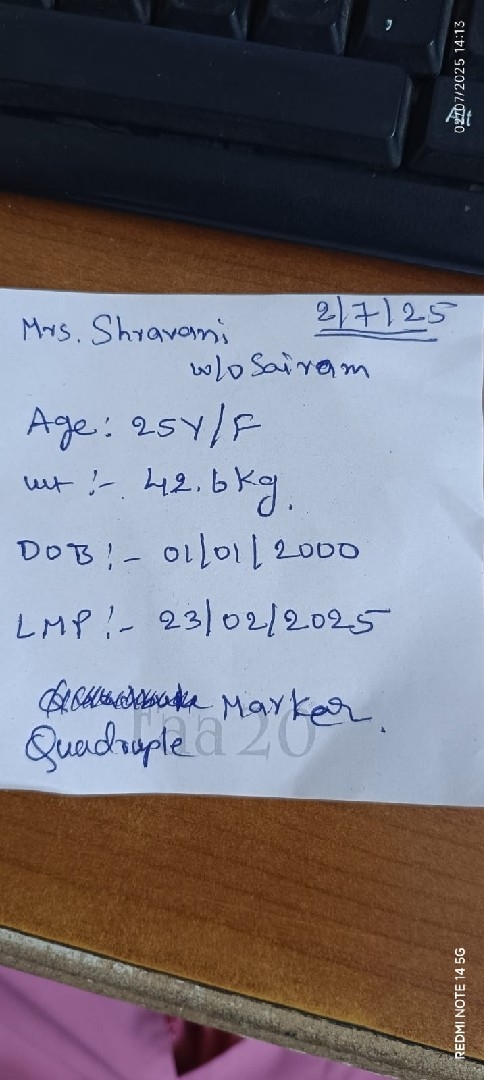 Alt
02/07/2025 14:13
2/7/25
Mrs. Shravani
w/o Sairam
Age: 25Y/F
wt :- 42.6kg.
DOB :- 01/01/2000
LMP :- 23/02/2025
Marker.
Quadruple
REDMI NOTE 14 5G